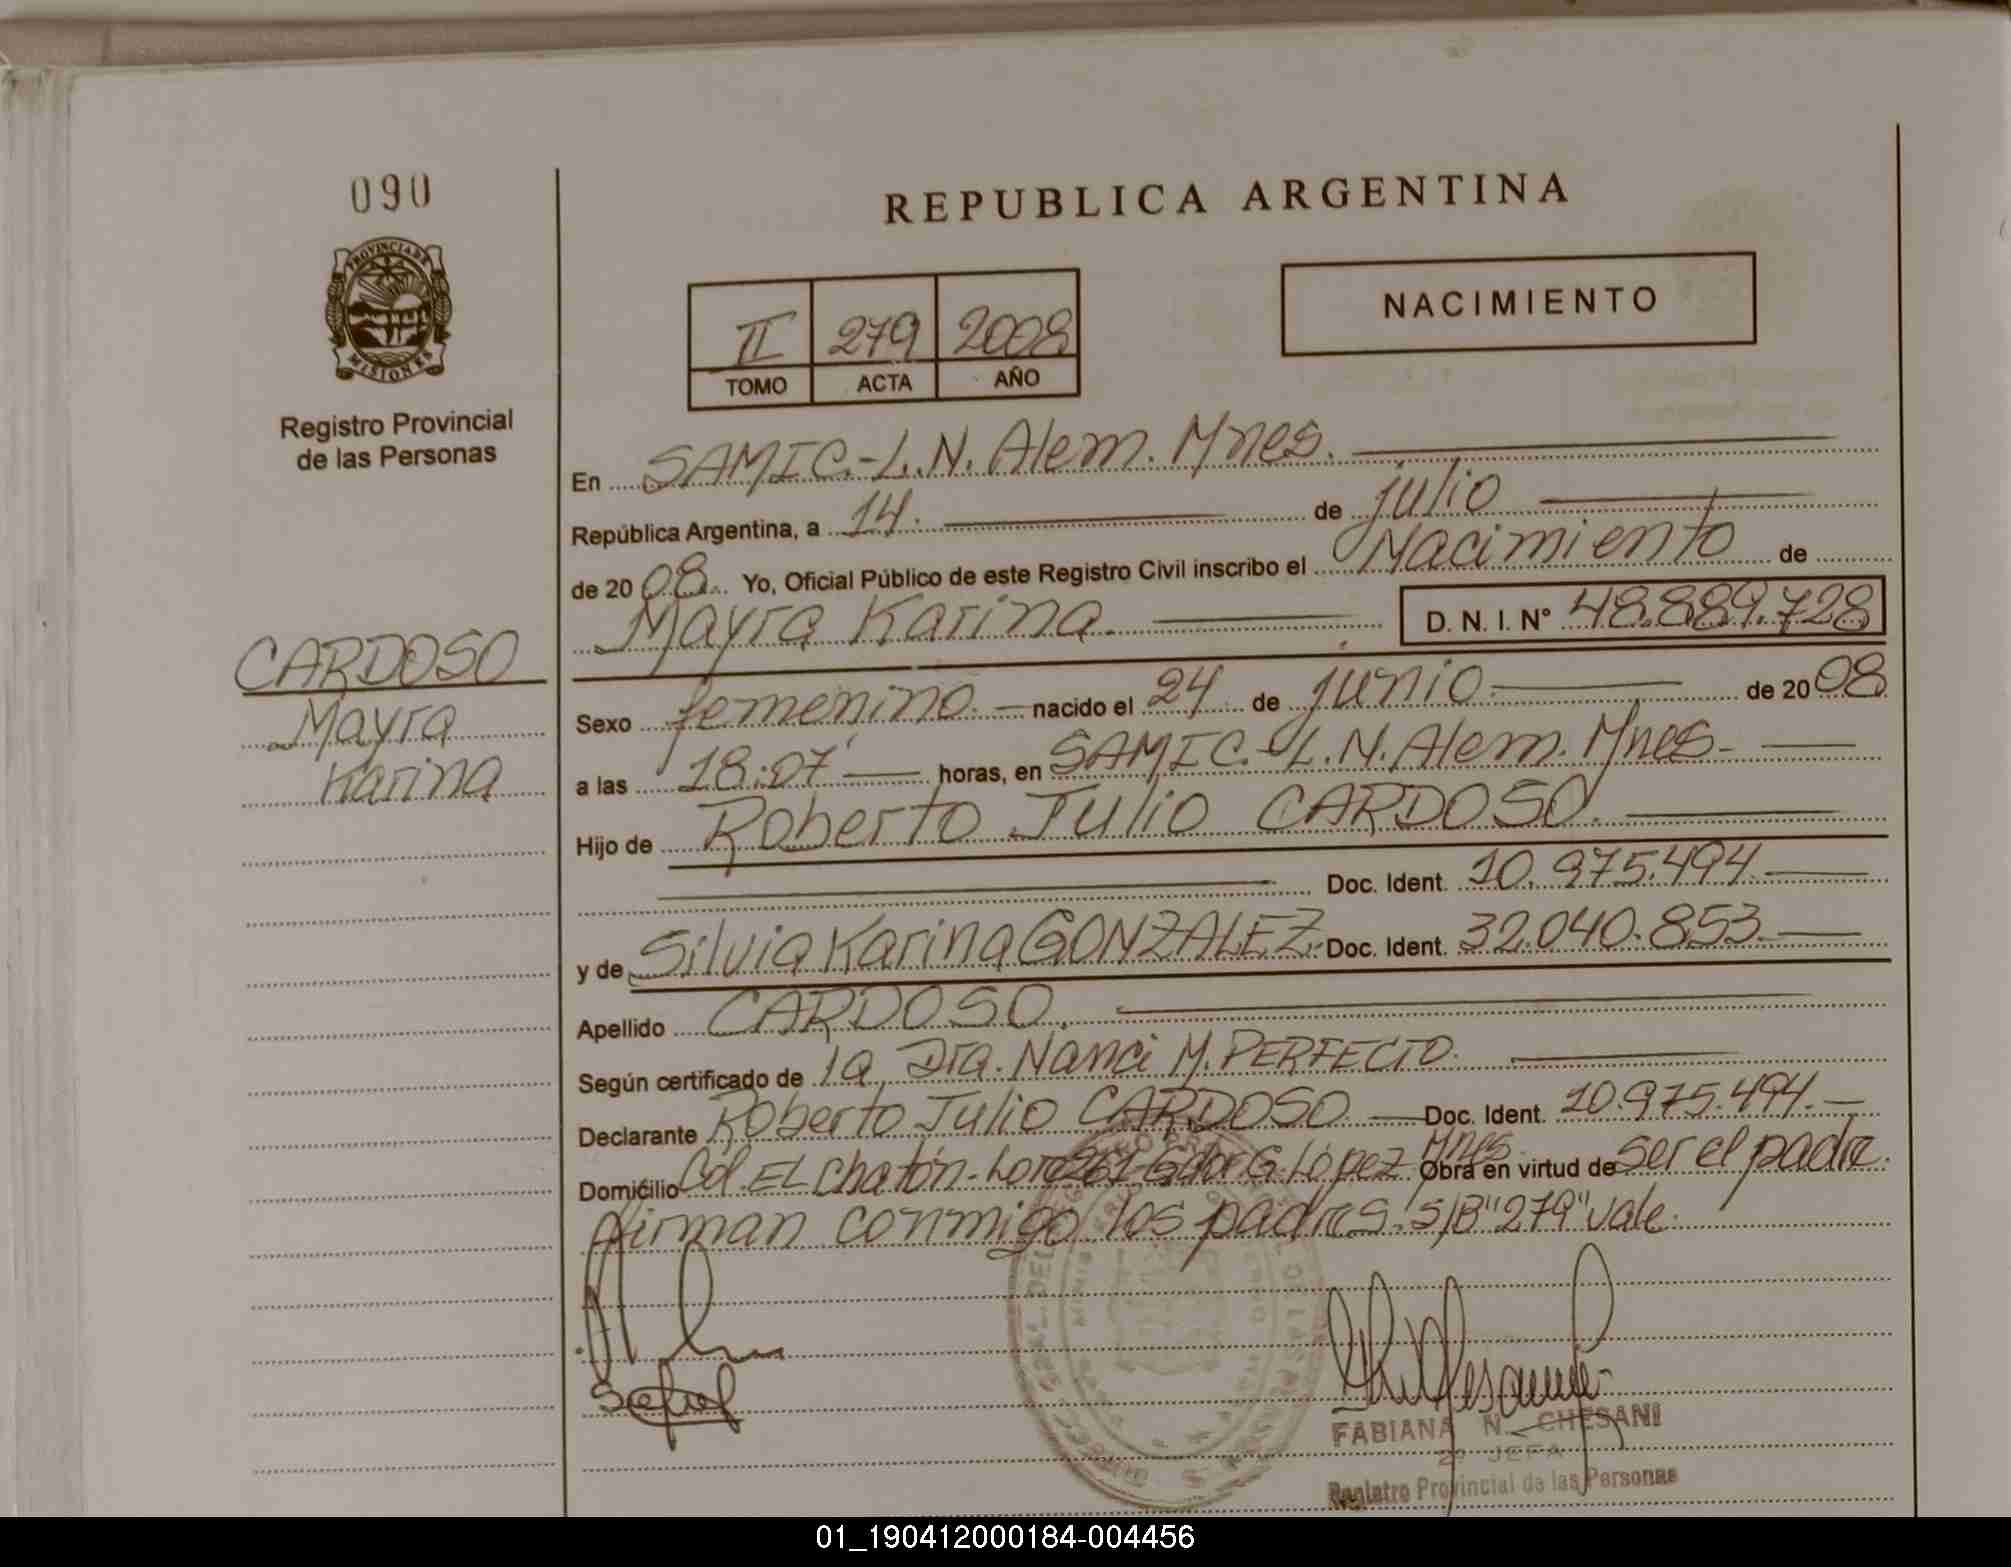 090
PROVINCIA DE
MISIONES
Registro Provincial
de las Personas
CARDOSO
Mayra
Karina
REPUBLICA ARGENTINA
II 279 2008
TOMO ACTA AÑO
NACIMIENTO
En SAMIC.-L.N. Alem. Mnes.
República Argentina, a 14. de julio
de 2008. Yo, Oficial Público de este Registro Civil inscribo el Nacimiento de
Mayra Karina. D. N. I. N° 48.889.728
Sexo femenino. nacido el 24 de junio. de 2008
a las 18:07' horas, en SAMIC.-L.N. Alem. Mnes.
Hijo de Roberto Julio CARDOSO.
Doc. Ident. 10.975.494.
y de Silvia Karina GONZALEZ. Doc. Ident. 32.040.853.
Apellido CARDOSO.
Según certificado de la Dra. Nanci M. PERFECTO.
Declarante Roberto Julio CARDOSO Doc. Ident. 10.975.494.
Domicilio Col. El Chatón- Gdor G. López Mnes Obra en virtud de ser el padre.
firman conmigo los padres. S/B "279" vale.
FABIANA N. CHESANI
2º JEFA
Registro Provincial de las Personas
01_190412000184-004456